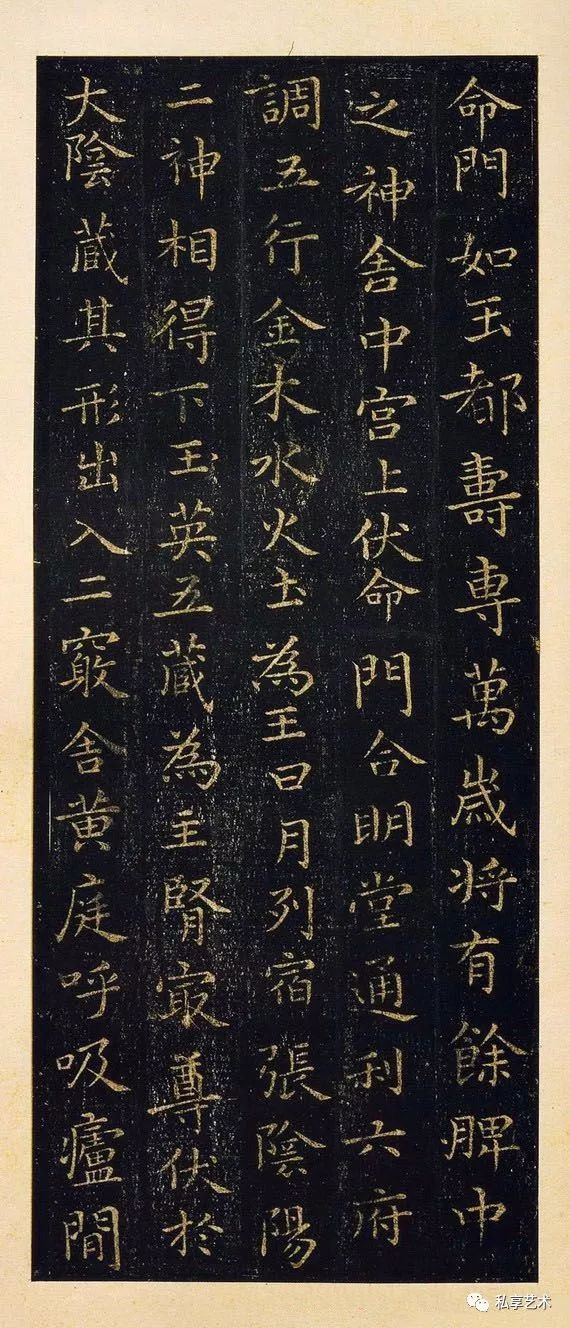 命門如王都壽專萬歲将有餘脾中
之神舍中宫上伏命門合明堂通利六府
調五行金木水火土為王日月列宿張陰陽
二神相得下玉英五蔵為主腎㝡尊伏於
大陰蔵其形出入二竅舍黄庭呼吸廬間
私享艺术